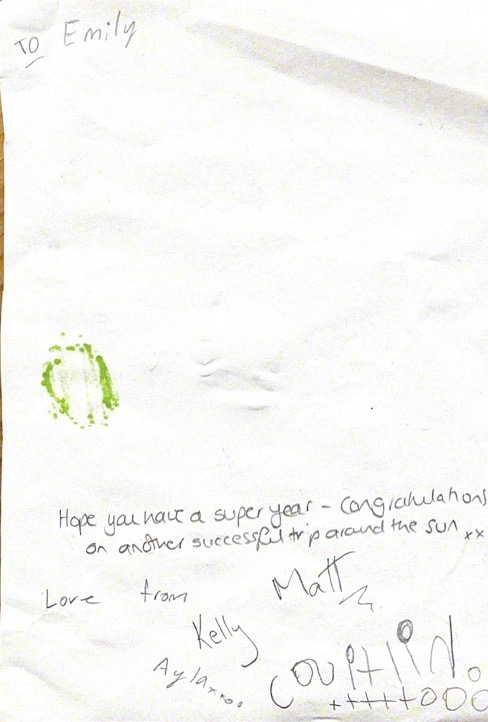 TO Emily
Hope you have a super year - Congratulations
on another successful trip around the sun xx
Love from
Matt
Kelly
Ayla xxoo
+++++OOO